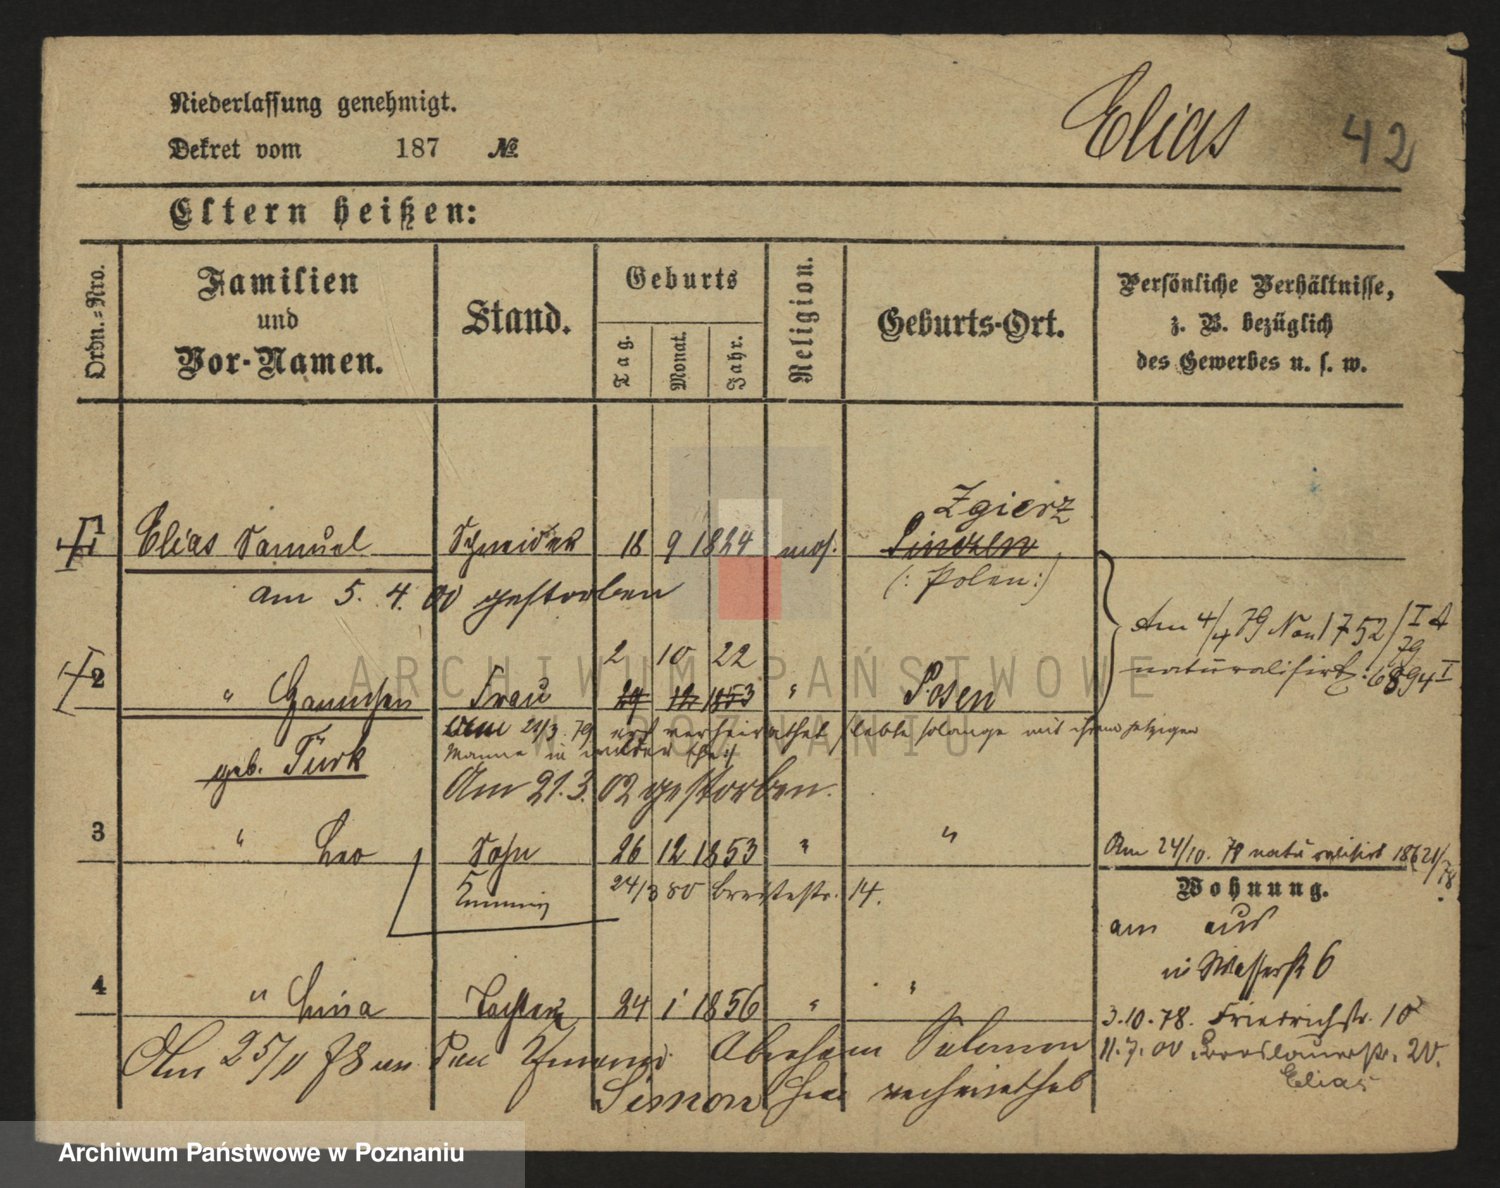 Niederlassung genehmigt.
Elias
42
Dekret vom 187 №
Eltern heißen:
Ordn.-Nro.
Familien und Vor-Namen.
Stand.
Geburts
Tag.
Monat.
Jahr.
Religion.
Geburts-Ort.
Persönliche Verhältnisse,
z. B. bezüglich
des Gewerbes u. s. w.
Zgierz
1 Elias Samuel Schneider 18 9 1824 mos.
(: Polen :)
am 5. 4. 00 gestorben
Am 4/4 79 1752/79 I A
naturalisirt. 6894 I
2 10 22
2 " Frau 24 12 1853 " Posen
21/3. 79 erst verheirathet (lebte solange mit ihrem jetzigen
Manne in wilder Ehe:)
geb. Türk
Am 21. 3. 02 gestorben.
3 " Leo Sohn 26 12 1853 " "
Am 24/10. 78 naturalisirt
24/3 80 Breitestr. 14.
Wohnung.
am aus
in Wasserstr 6
4 " Lina Tochter 24 1 1856 " "
3.10.78. Friedrichstr. 10
Am 25/11 78 an den Abraham Salomon
11.7.00 Breslauerstr. 20.
Elias
Simon verheirathet
ARCHIWUM PAŃSTWOWE
W POZNANIU
Archiwum Państwowe w Poznaniu